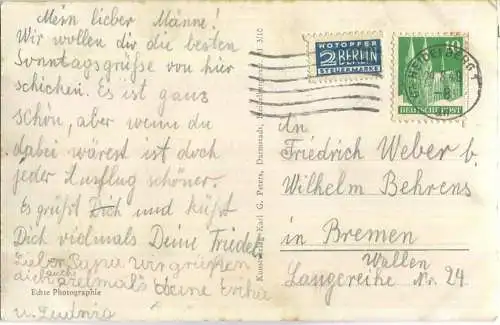 Mein lieber Männe!
Wir wollen dir die besten
Sonntagsgrüße von hier
schicken. Es ist ganz
schön, aber wenn du
dabei wärest ist doch
jeder Ausflug schöner.
Es grüßt Dich und küßt
Dich vielmals Deine Friedel
Lieber Papa wir grüßen
dich auch vielmals deine
u.
Echte Photographie
Kunstverlag Karl G. Peters, Darmstadt,
NOTOPFER
2 BERLIN
STEUERMARKE
10
DEUTSCHE POST
HEIDELBERG 1
An
Friedrich Weber b.
Wilhelm Behrens
in Bremen
Wallen
Langereihe Nr. 24.